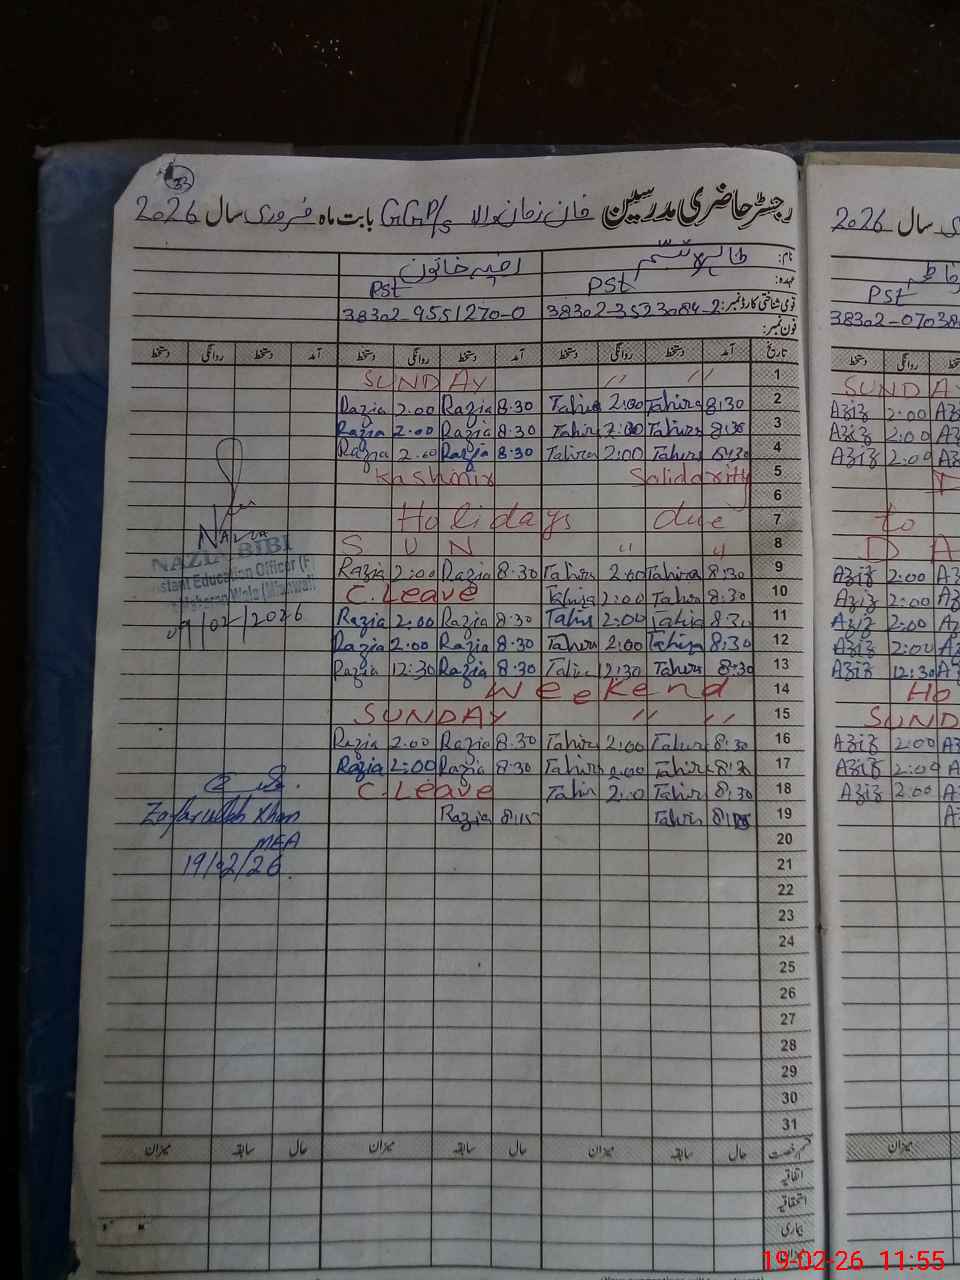 33
رجسٹر حاضری مدرسین خان زمان والا GGP/S بابت ماہ فروری سال 2026
نام: طاہرہ تبسم رضیہ خاتون
عہدہ: PST PST
قومی شناختی کارڈ نمبر: 38302-3523084-2 38302-9551270-0
فون نمبر:
تاریخ آمد دستخط روانگی دستخط آمد دستخط روانگی دستخط آمد دستخط روانگی دستخط
SUNDAY " " 1
Razia 2.00 Razia 8.30 Tahira 2:00 Tahira 8:30 2
Razia 2.00 Razia 8.30 Tahira 2:00 Tahira 8:30 3
Razia 2.00 Razia 8.30 Tahira 2:00 Tahira 8:30 4
Kashmir Solidarity 5
6
Holidays due 7
S U N " " 8
Razia 2:00 Razia 8.30 Tahira 2:00 Tahira 8:30 9
C.Leave Tahira 2:00 Tahira 8:30 10
Razia 2:00 Razia 8:30 Tahira 2:00 Tahira 8:30 11
Razia 2.00 Razia 8.30 Tahira 2:00 Tahira 8:30 12
Razia 12:30 Razia 8.30 Tahira 12:30 Tahira 8:30 13
Weekend 14
SUNDAY " " 15
Razia 2.00 Razia 8.30 Tahira 2:00 Tahira 8:30 16
Razia 2:00 Razia 8.30 Tahira 2:00 Tahira 8:30 17
C.Leave Tahira 2:00 Tahira 8:30 18
Razia 8:15 Tahira 8:15 19
20
21
22
23
24
25
26
27
28
29
30
31
قسم رخصت حال سابقہ میزان حال سابقہ میزان حال سابقہ میزان
اتفاقیہ
استحقاقیہ
بیماری
میزان
Nazia
NAZIA BIBI
stant Education Officer (F)
Wala (Mianwali)
09/02/2026
Zafarullah Khan
MEA
19/02/26.
2026 سال
PST
38302-0703
دستخط روانگی
SUNDA
Aziz 2:00
Aziz 2:00
Aziz 2:00
to
D A
Aziz 2:00
Aziz 2:00
Aziz 2:00
Aziz 2:00
Aziz 12:30
Ho
SUND
Aziz 2:00
Aziz 2:00
Aziz 2:00
میزان
19-02-26 11:55